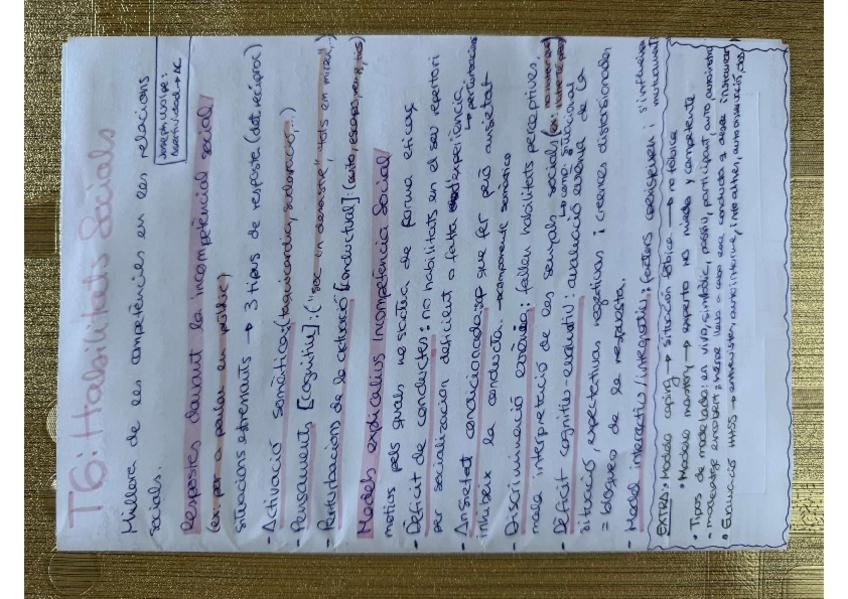 T6: Habilitats Socials
Millora de les competències en les relacions
socials.
Joseph Wolpe:
Asertividad → AC
Respostes davant la incompetència social
(ex: por a parlar en públic)
situacions estressants → 3 tipus de resposta (det. recíproc)
- Activació somàtica: (taquicàrdia, sudoració,...)
- Pensaments [cognitiu]: ("soc un desastre", tots em miren,..)
- Perturbacions de la actuació [conductual]:
Models explicatius Incompetència Social
motius pels quals no s'actua de forma eficaç
- Dèficit de conductes: no habilitats en el seu repertori
per socialización deficient o falta d'experiència
- Ansietat condicionada: sap que fer però ansietat
inhibeix la conducta. → componente somático
- Discriminació errònia: fallen habilitats perceptives,
mala interpretació de les senyals socials
- Dèficit cognitiu-avaluatiu: avaluació errònia de la
situació, expectativas negativas i creences distorsionades
= bloqueo de la respuesta.
- Model interactiu/integratiu: (factors coexisteixen i s'influeixen
mutuament)
EXTRA: • Modelo coping → situación fóbica → no fóbica
• Modelo mastery → experto no miedo y competente
• Tipos de modelado: en vivo, simbólic, passiu, participant, auto
- modelatge encobert: s'lleva a cabo esa conducta q desea instaurar
• Evaluació HHSS → entrevistes, autoinforme, autoobservació, obs